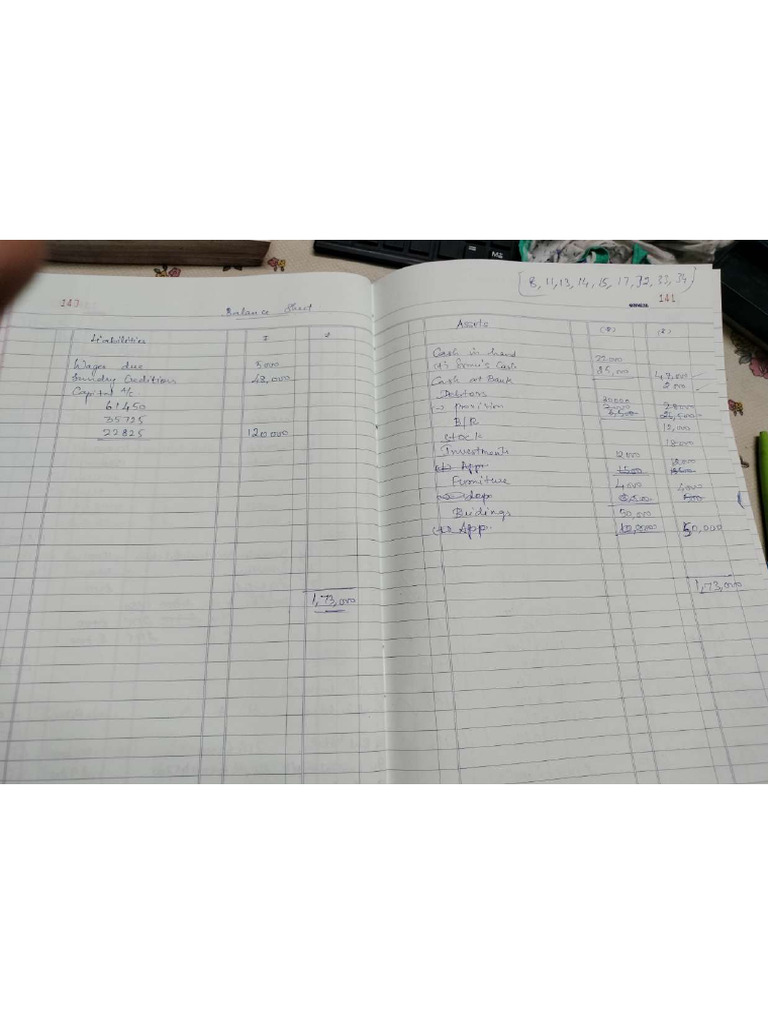 140
Balance Sheet
Liabilities ₹ ₹
Wages due 5000
Sundry Creditors 48,000
Capital A/c
61450
35725
22825 120000
1,73,000
[8, 11, 13, 14, 15, 17, 32, 33, 34]
141
Assets (₹) (₹)
Cash in hand 22000
Cash 25,000 47,000
Cash at Bank 2000
Debtors 30000
(-) Provision 2000 28000
B/R 12,000
Stock 18000
Investments 12,000 12000
(+) App.
Furniture 4000 4000
(-) dep
Buidings 50,000
(+) App. 10,000 50,000
1,73,000